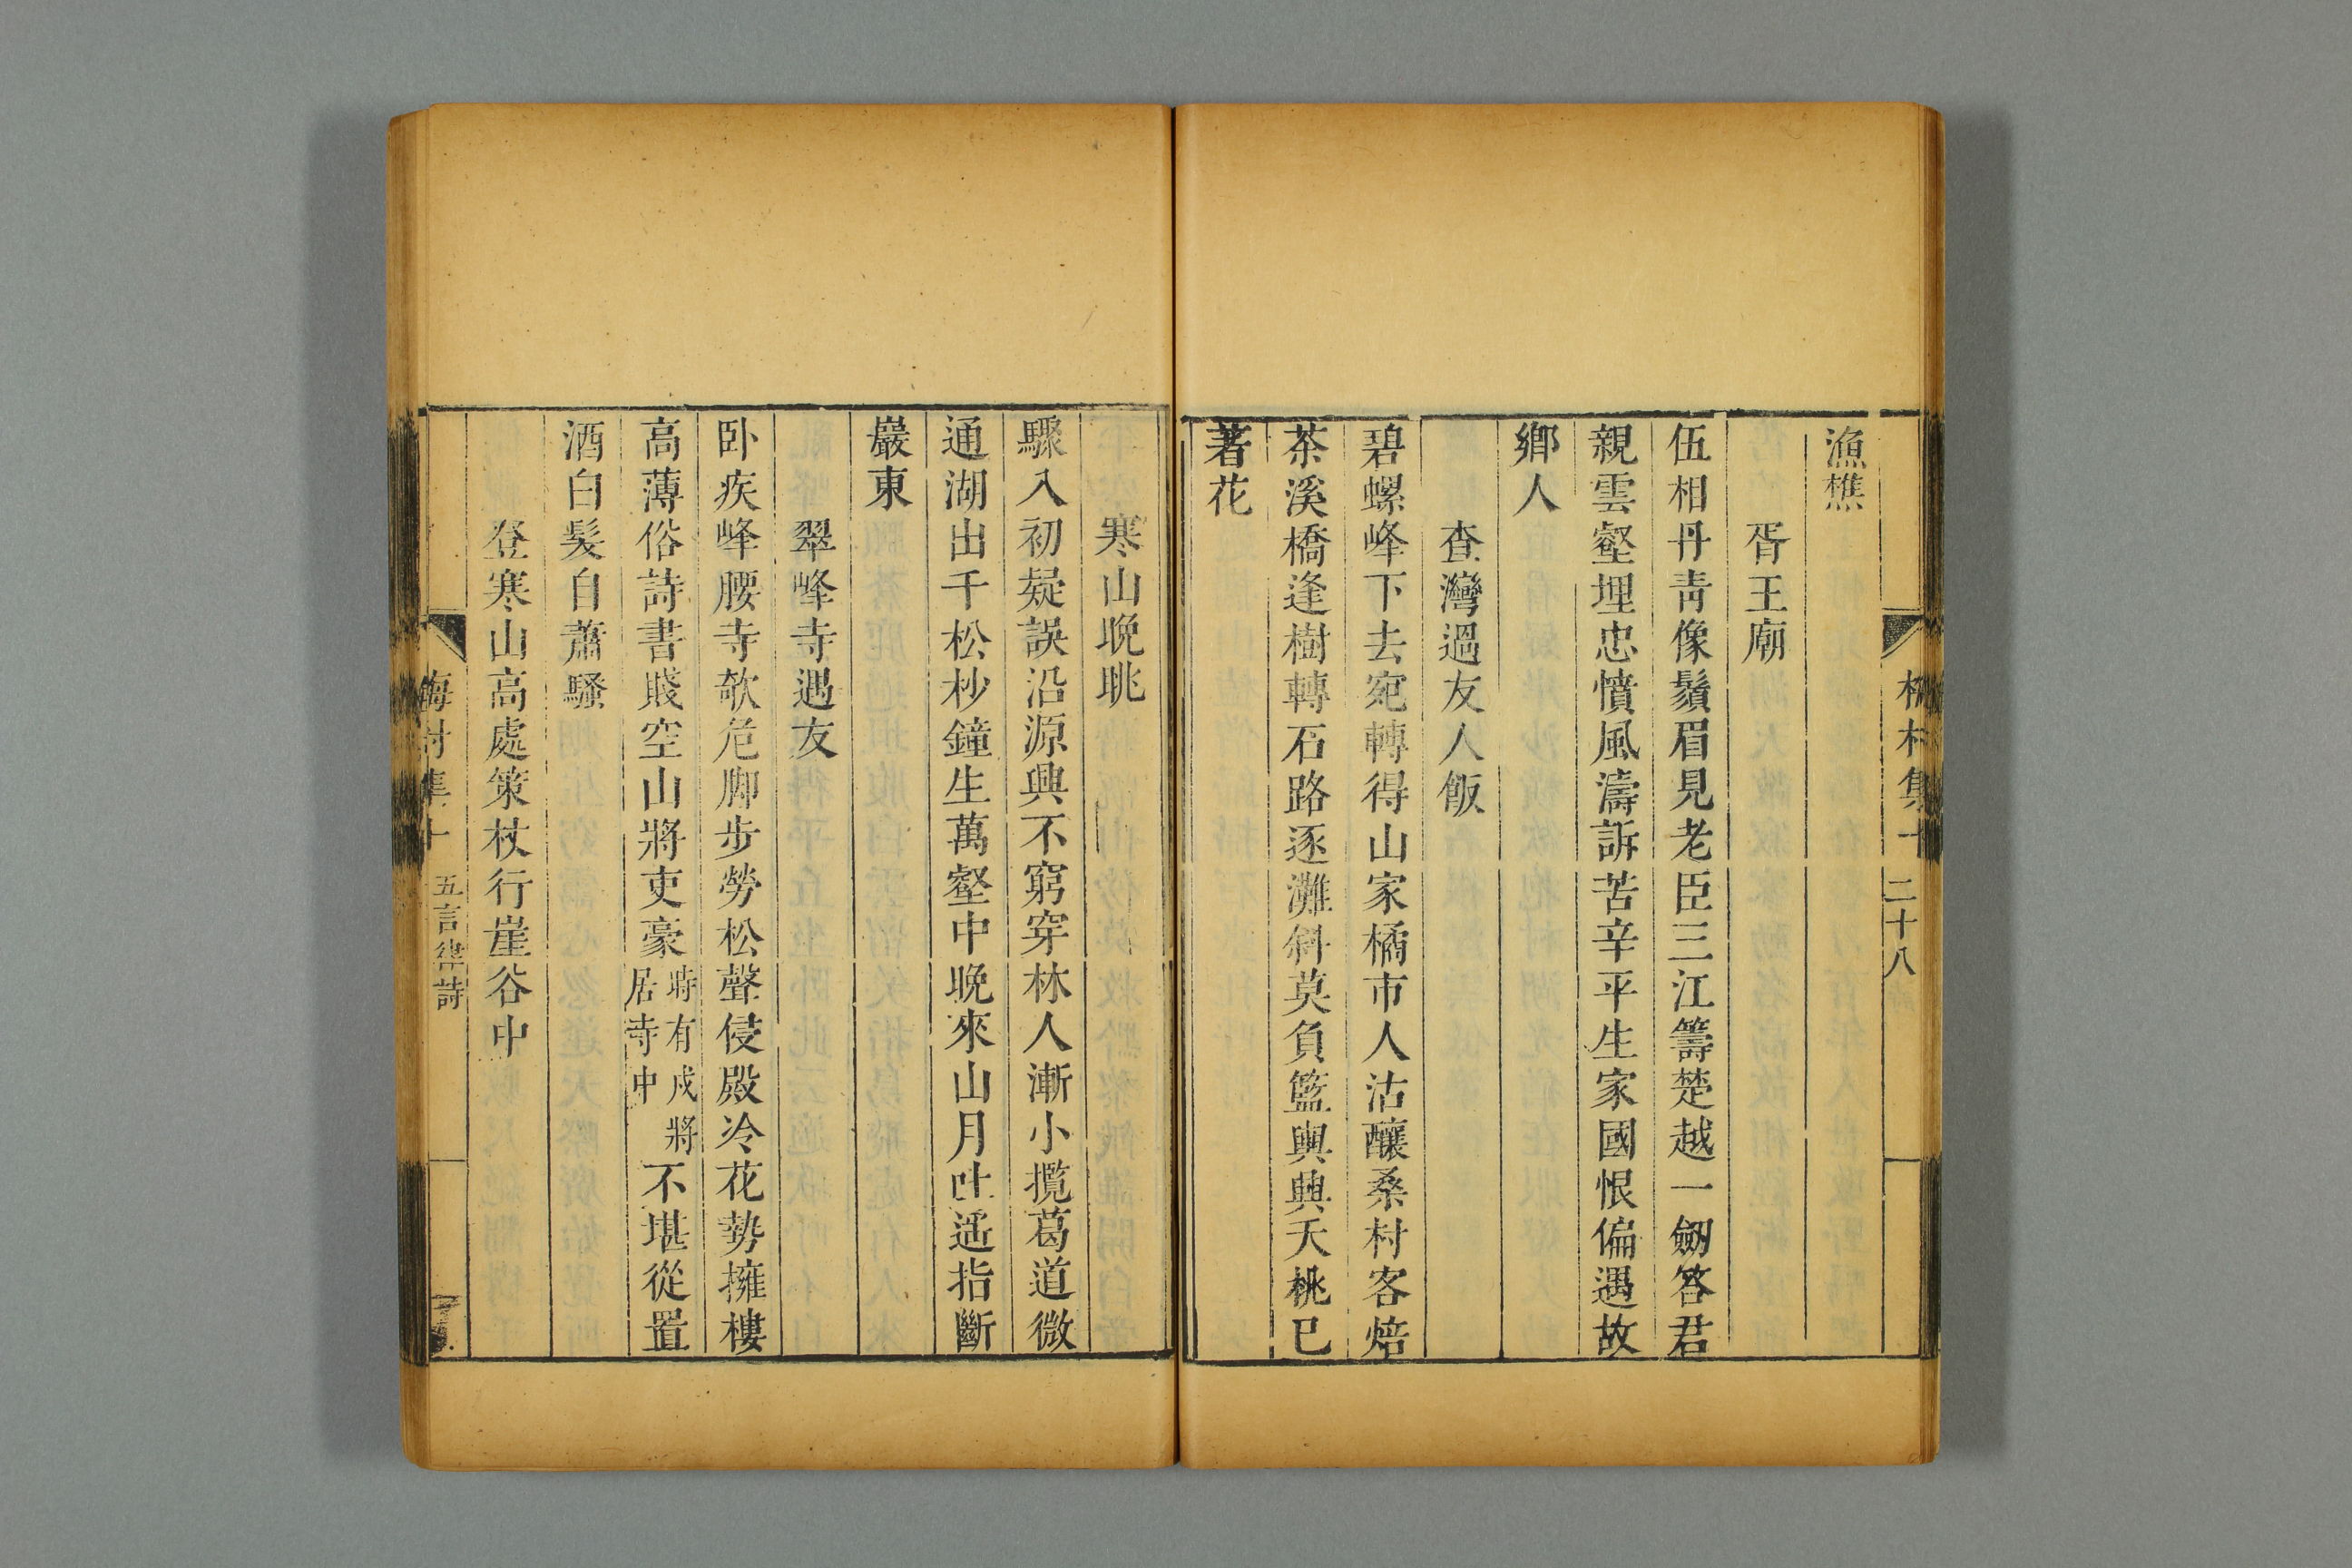 梅村集十 二十八
漁樵
胥王廟
伍相丹靑像鬚眉見老臣三江籌楚越一劒答君
親雲壑埋忠憤風濤訴苦辛平生家國恨偏遇故
鄉人
查灣過友人飯
碧螺峰下去宛轉得山家橘市人沽釀桑村客焙
茶溪橋逢樹轉石路逐灘斜莫負籃輿興夭桃已
著花
寒山晚眺
驟入初疑誤沿源興不窮穿林人漸小攬葛道微
通湖出千松杪鐘生萬壑中晚來山月吐遥指斷
巖東
翠峰寺遇友
卧疾峰腰寺欹危脚步勞松聲侵殿冷花勢擁樓
高薄俗詩書賤空山將吏豪時有戍將居寺中不堪從置
酒白髮自蕭騷
登寒山高處策杖行崖谷中
梅村集十 五言律詩